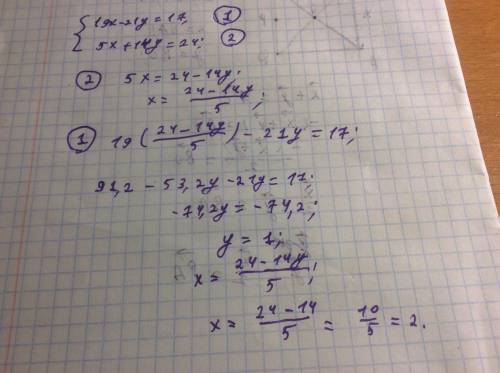 { 19x-21y=17; ①
5x+14y=24; ②
② 5x=24-14y;
x= (24-14y)/5;
① 19((24-14y)/5)-21y=17;
91,2-53,2y-21y=17;
-74,2y=-74,2;
y=1;
x= (24-14y)/5;
x= (24-14)/5 = 10/5 = 2.